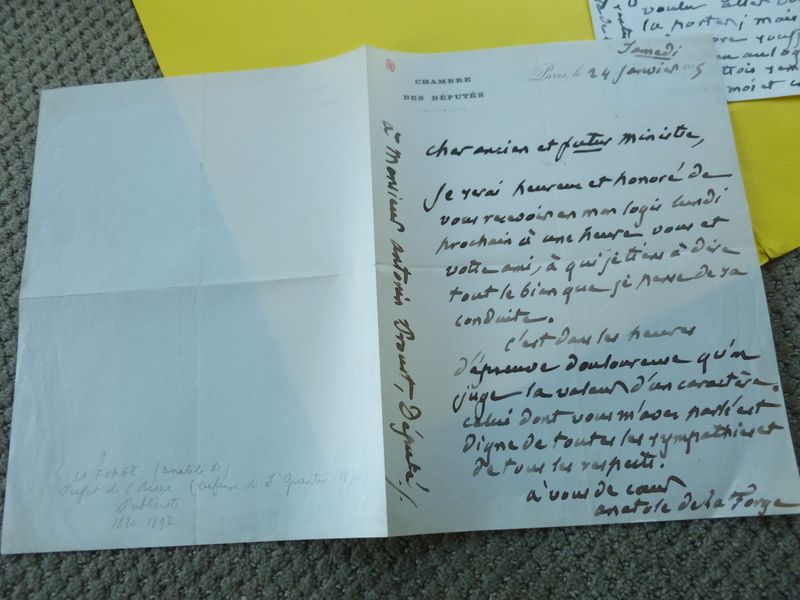 CHAMBRE
DES DÉPUTÉS
Samedi
Paris, le 24 Janvier 1885
cher ancien et futur ministre,
Je serai heureux et honoré de
vous recevoir en mon logis lundi
prochain à une heure vous et
votre ami, à qui je tiens à dire
tout le bien que je pense de sa
conduite.
c'est dans les heures
d'épreuve douloureuse qu'on
juge la valeur d'un caractère.
celui dont vous m'avez parlé est
digne de toutes les sympathies et
de tous les respects.
à vous de cœur
anatole de la Forge
à Monsieur antonin Proust, Député!/.
LA FORGE (anatole de)
Préfet de l'Aisne (Défense de St Quentin 1870)
Publiciste
1820-1892
voulu aller
la porter; mais
moi et